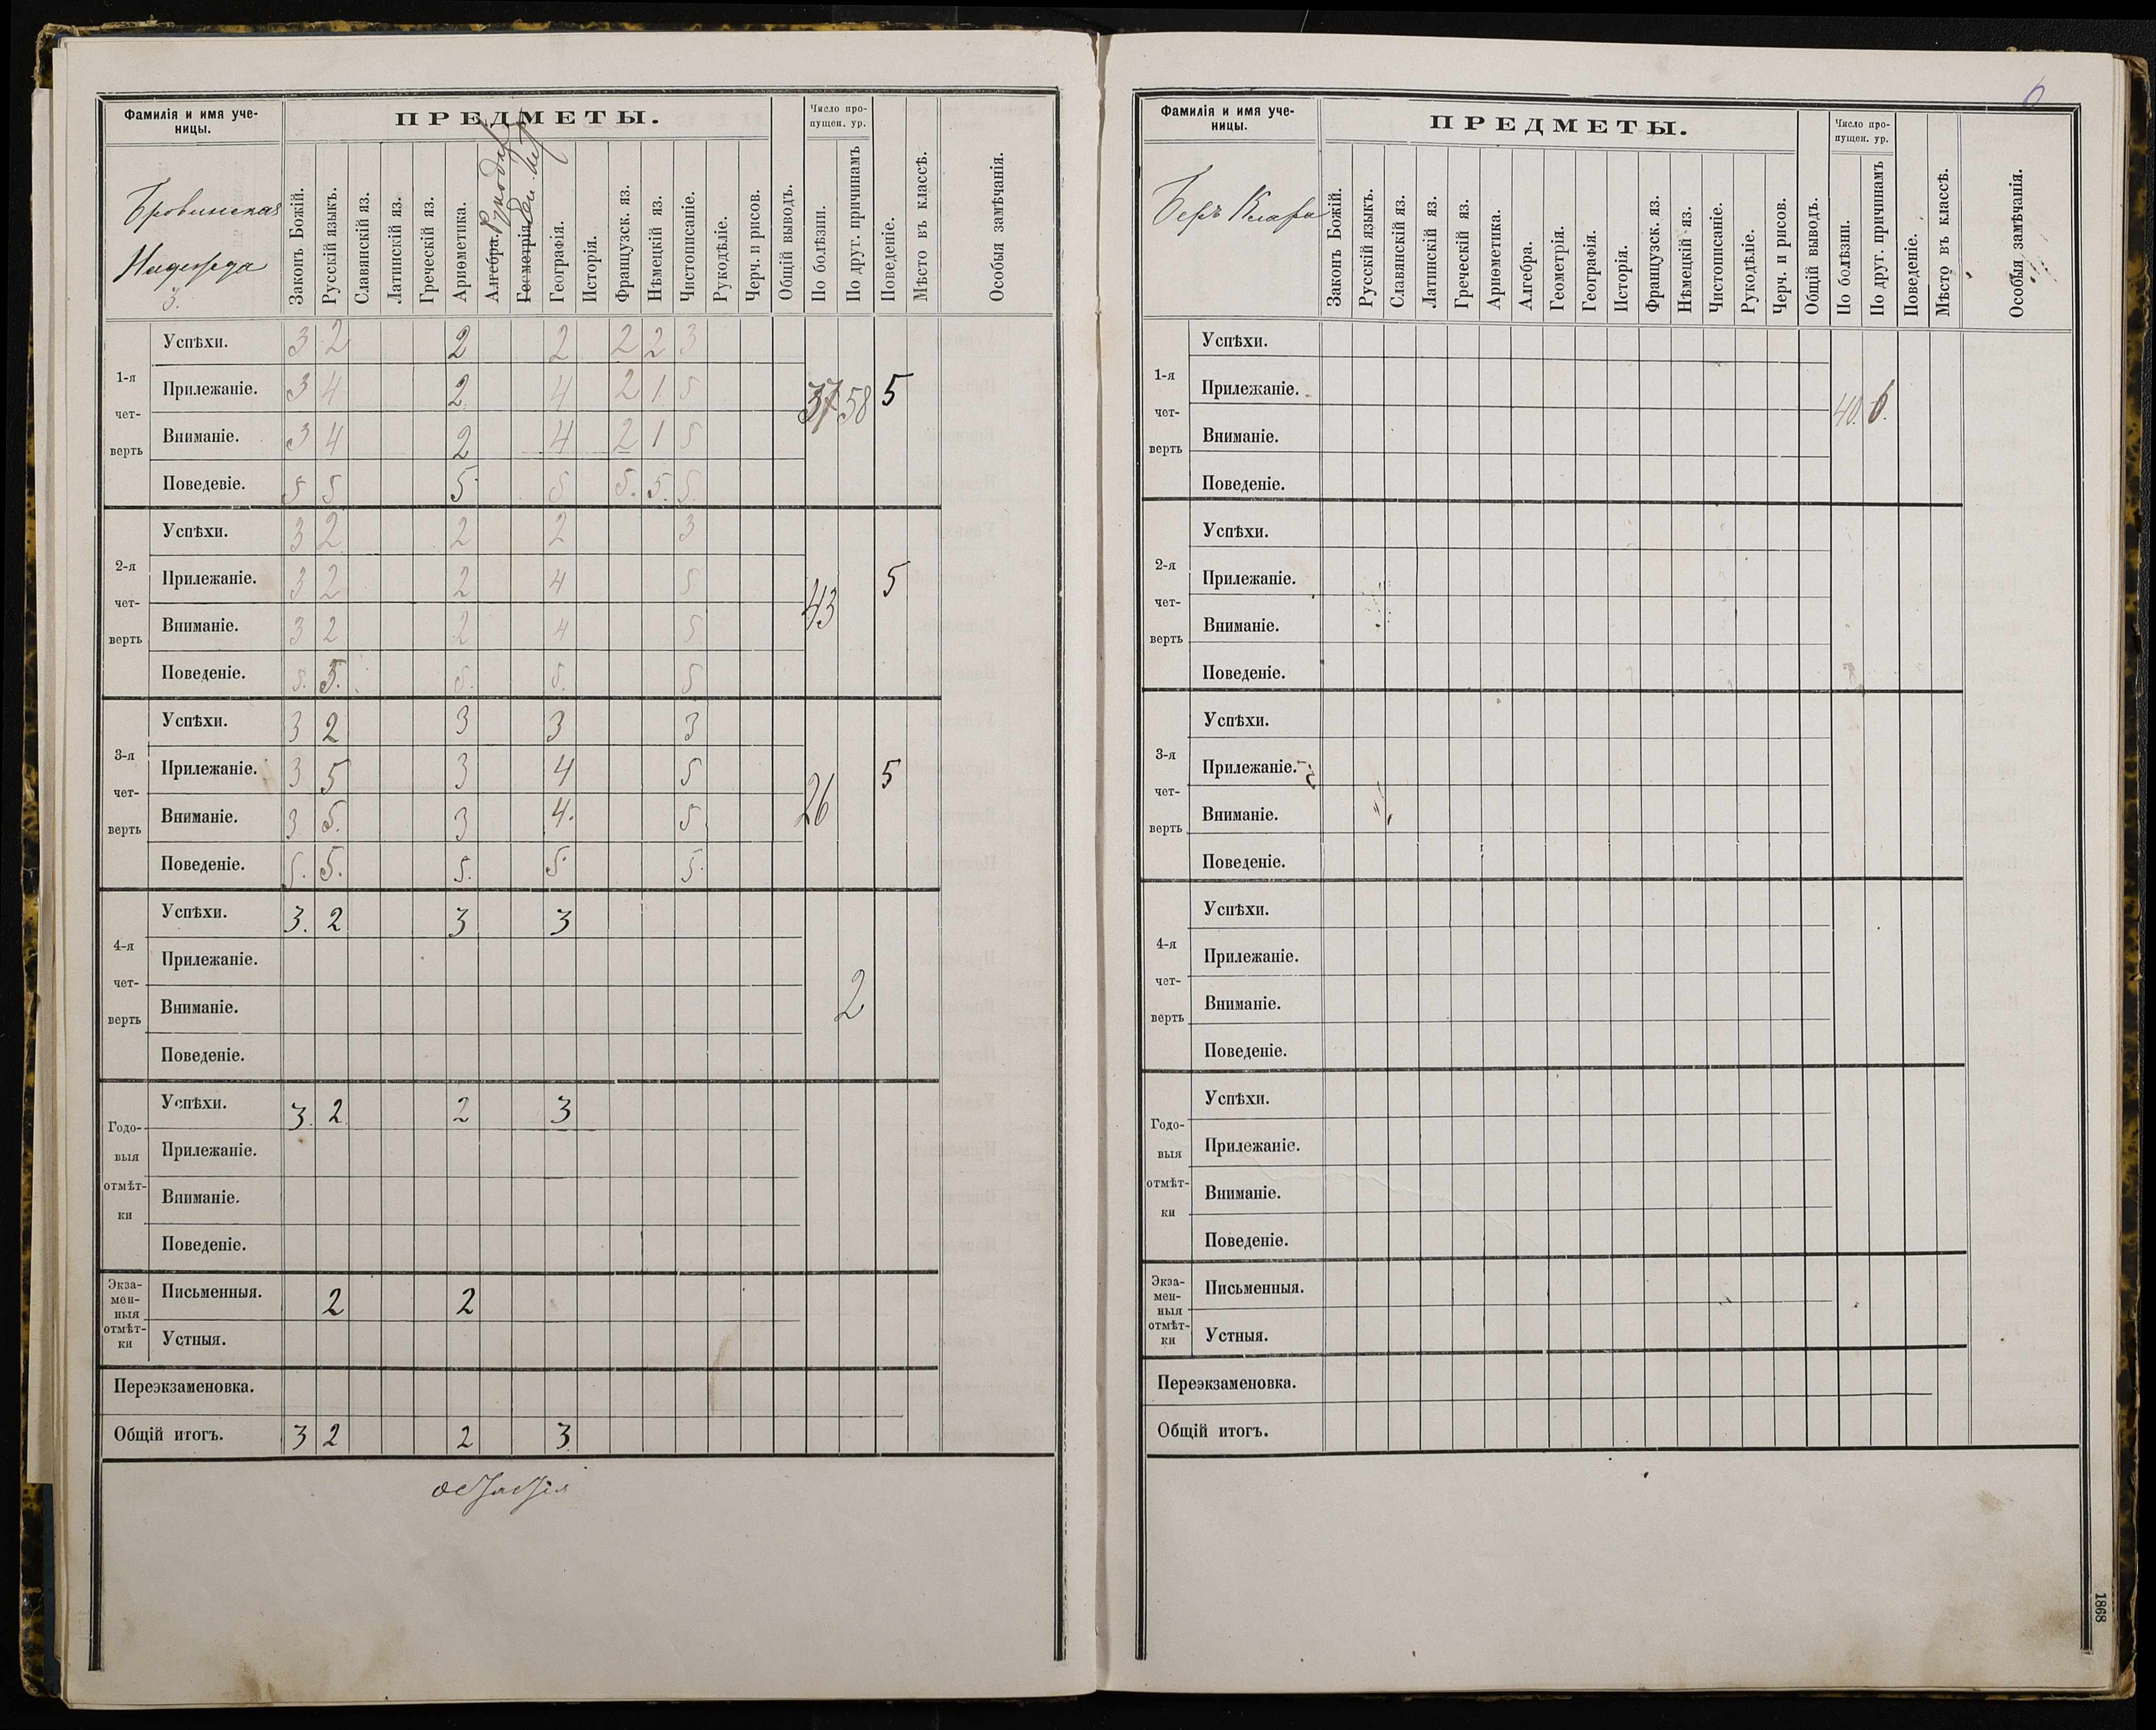 Фамилія и имя уче-
ницы.
ПРЕДМЕТЫ.
Число про-
пущен. ур.
Бровинская
Надежда
3.
Законъ Божій.
Русскій языкъ.
Славянскій яз.
Латинскій яз.
Греческій яз.
Ариѳметика.
Алгебра.
Геометрія.
Географія.
Исторія.
Французск. яз.
Нѣмецкій яз.
Чистописаніе.
Рукодѣліе.
Черч. и рисов.
Общій выводъ.
По болѣзни.
По друг. причинамъ
Поведеніе.
Мѣсто въ классѣ.
Особыя замѣчанія.
1-я чет-верть
Успѣхи. 3 2 2 2 2 2 3
Прилежаніе. 3 4 2 4 2 1 5
37 58 5
Вниманіе. 3 4 2 4 2 1 5
Поведеніе. 5 5 5 5 5. 5. 5.
2-я чет-верть
Успѣхи. 3 2 2 2 3
Прилежаніе. 3 2 2 4 5
43 5
Вниманіе. 3 2 2 4 5
Поведеніе. 5. 5. 5. 5. 5
3-я чет-верть
Успѣхи. 3 2 3 3 3
Прилежаніе. 3 5 3 4 5
26 5
Вниманіе. 3 5. 3 4. 5
Поведеніе. 5. 5. 5. 5. 5.
4-я чет-верть
Успѣхи. 3. 2 3 3
Прилежаніе.
Вниманіе. 2
Поведеніе.
Годо-выя отмѣт-ки
Успѣхи. 3. 2 2 3
Прилежаніе.
Вниманіе.
Поведеніе.
Экза-мен-ныя отмѣт-ки
Письменныя. 2 2
Устныя.
Переэкзаменовка.
Общій итогъ. 3 2 2 3
6
Фамилія и имя уче-
ницы.
ПРЕДМЕТЫ.
Число про-
пущен. ур.
Беръ Клара
Законъ Божій.
Русскій языкъ.
Славянскій яз.
Латинскій яз.
Греческій яз.
Ариѳметика.
Алгебра.
Геометрія.
Географія.
Исторія.
Французск. яз.
Нѣмецкій яз.
Чистописаніе.
Рукодѣліе.
Черч. и рисов.
Общій выводъ.
По болѣзни.
По друг. причинамъ
Поведеніе.
Мѣсто въ классѣ.
Особыя замѣчанія.
1-я чет-верть
Успѣхи.
Прилежаніе.
40. 6.
Вниманіе.
Поведеніе.
2-я чет-верть
Успѣхи.
Прилежаніе.
Вниманіе.
Поведеніе.
3-я чет-верть
Успѣхи.
Прилежаніе.
Вниманіе.
Поведеніе.
4-я чет-верть
Успѣхи.
Прилежаніе.
Вниманіе.
Поведеніе.
Годо-выя отмѣт-ки
Успѣхи.
Прилежаніе.
Вниманіе.
Поведеніе.
Экза-мен-ныя отмѣт-ки
Письменныя.
Устныя.
Переэкзаменовка.
Общій итогъ.
1868